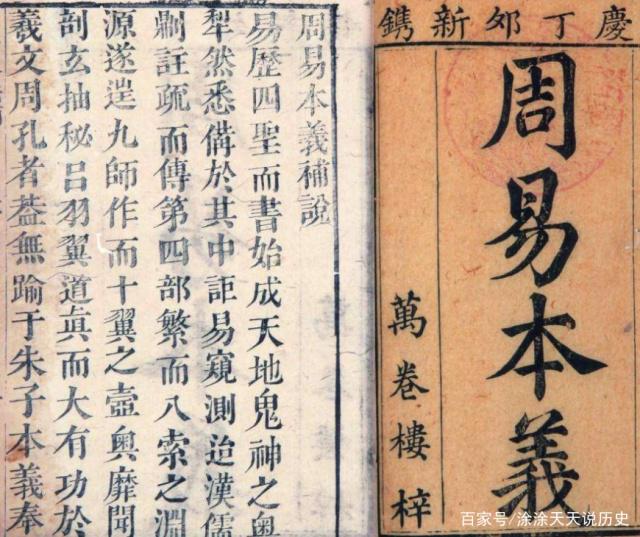 慶丁夘新鐫
周易本義
萬卷樓梓
周易本義補說
易歷四聖而書始成天地鬼神之奧
犂然悉備於其中詎易窺測迨漢儒
註疏而傳第四部繁而八索之淵
源遂九師作而十翼之壼奧靡聞
剖玄抽秘㠯羽翼道眞而大有功於
羲文周孔者葢無踰于朱子本義奉
百家号/涂涂天天说历史